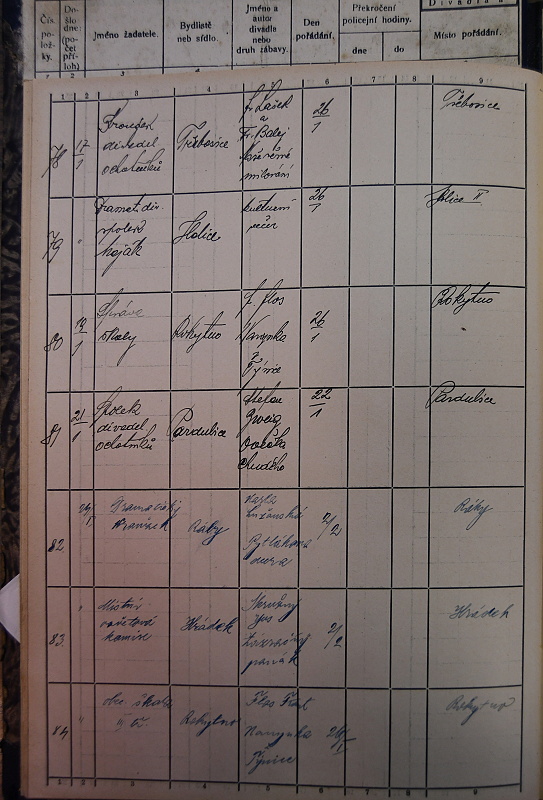 Čís. po- ložky.
Do- šlo dne: (po- čet pří- loh)
Jméno žadatele.
Bydliště neb sídlo.
Jméno a autor divadla nebo druh zábavy.
Den pořádání.
Překročení policejní hodiny.
dne
do
Místo pořádání.
1 2 3 4 5 6 7 8 9
78
17/1
Kroužek
divadel
ochotníků
Třebovice
Fr. Lašek
a
Fr. Balej
milování
26/1
Třebovice
79
"
Dramat. div.
spolek
Hoják
Holice
kulturní
večer
26/1
Holice II
80
19/1
Správa
školy
Rokytno
F. Flos
Nanynka
z
Týnice
26/1
Rokytno
81
21/1
Spolek
divadel
ochotníků
Pardubice
Stefan
Zweig
chudého
22/1
Pardubice
82
Dramatický
Ráby
Lužanská
Pytlákova
dcera
2/2
Ráby
83
"
Místní
osvětová
komise
Hrádek
2/2
Hrádek
84
"
obc. škola
Rokytno
Flos Fr.
Nanynka
Týnice
26/1
Rokytno
1 2 3 4 5 6 7 8 9